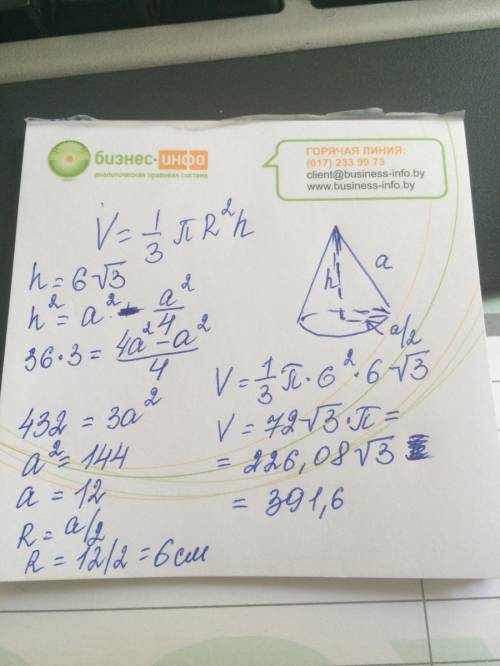 бизнес-инфо
аналитическая правовая система
ГОРЯЧАЯ ЛИНИЯ:
(017) 233 99 73
client@business-info.by
www.business-info.by
V = 1/3 π R² h
h = 6√3
h² = a² - a²/4
36·3 = (4a² - a²)/4
432 = 3a²
a² = 144
a = 12
R = a/2
R = 12/2 = 6 см
h
a
a/2
V = 1/3 π · 6² · 6√3
V = 72√3 · π =
= 226,08√3
= 391,6